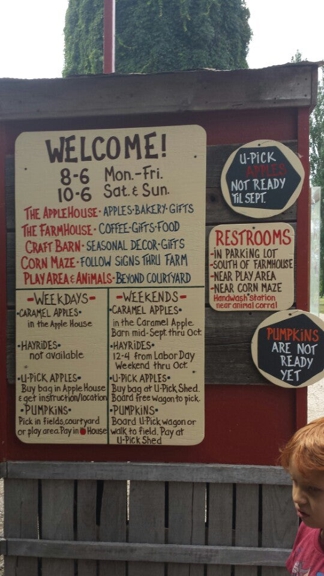 WELCOME!
8-6 Mon.-Fri.
10-6 Sat. & Sun.
THE APPLEHOUSE - APPLES-BAKERY-GIFTS
THE FARMHOUSE - COFFEE-GIFTS-FOOD
CRAFT BARN - SEASONAL DECOR-GIFTS
CORN MAZE - FOLLOW SIGNS THRU FARM
PLAY AREA & ANIMALS - BEYOND COURTYARD
-WEEKDAYS-
•CARAMEL APPLES•
in the Apple House
•HAYRIDES•
not available
•U-PICK APPLES•
Buy bag in Apple House
& get instruction/location
•PUMPKINS•
Pick in fields, courtyard
or play area. Pay in House
-WEEKENDS-
•CARAMEL APPLES•
in the Caramel Apple
Barn mid-Sept. thru Oct.
•HAYRIDES•
12-4 from Labor Day
Weekend thru Oct.
•U-PICK APPLES•
Buy bag at U-Pick Shed.
Board free wagon to pick.
•PUMPKINS•
Board U-Pick wagon or
walk to field. Pay at
U-Pick Shed
U-PICK
APPLES
NOT READY
TIL SEPT.
RESTROOMS
-IN PARKING LOT
-SOUTH OF FARMHOUSE
-NEAR PLAY AREA
-NEAR CORN MAZE
Handwash Station
near animal corral
PUMPKINS
ARE NOT
READY
YET